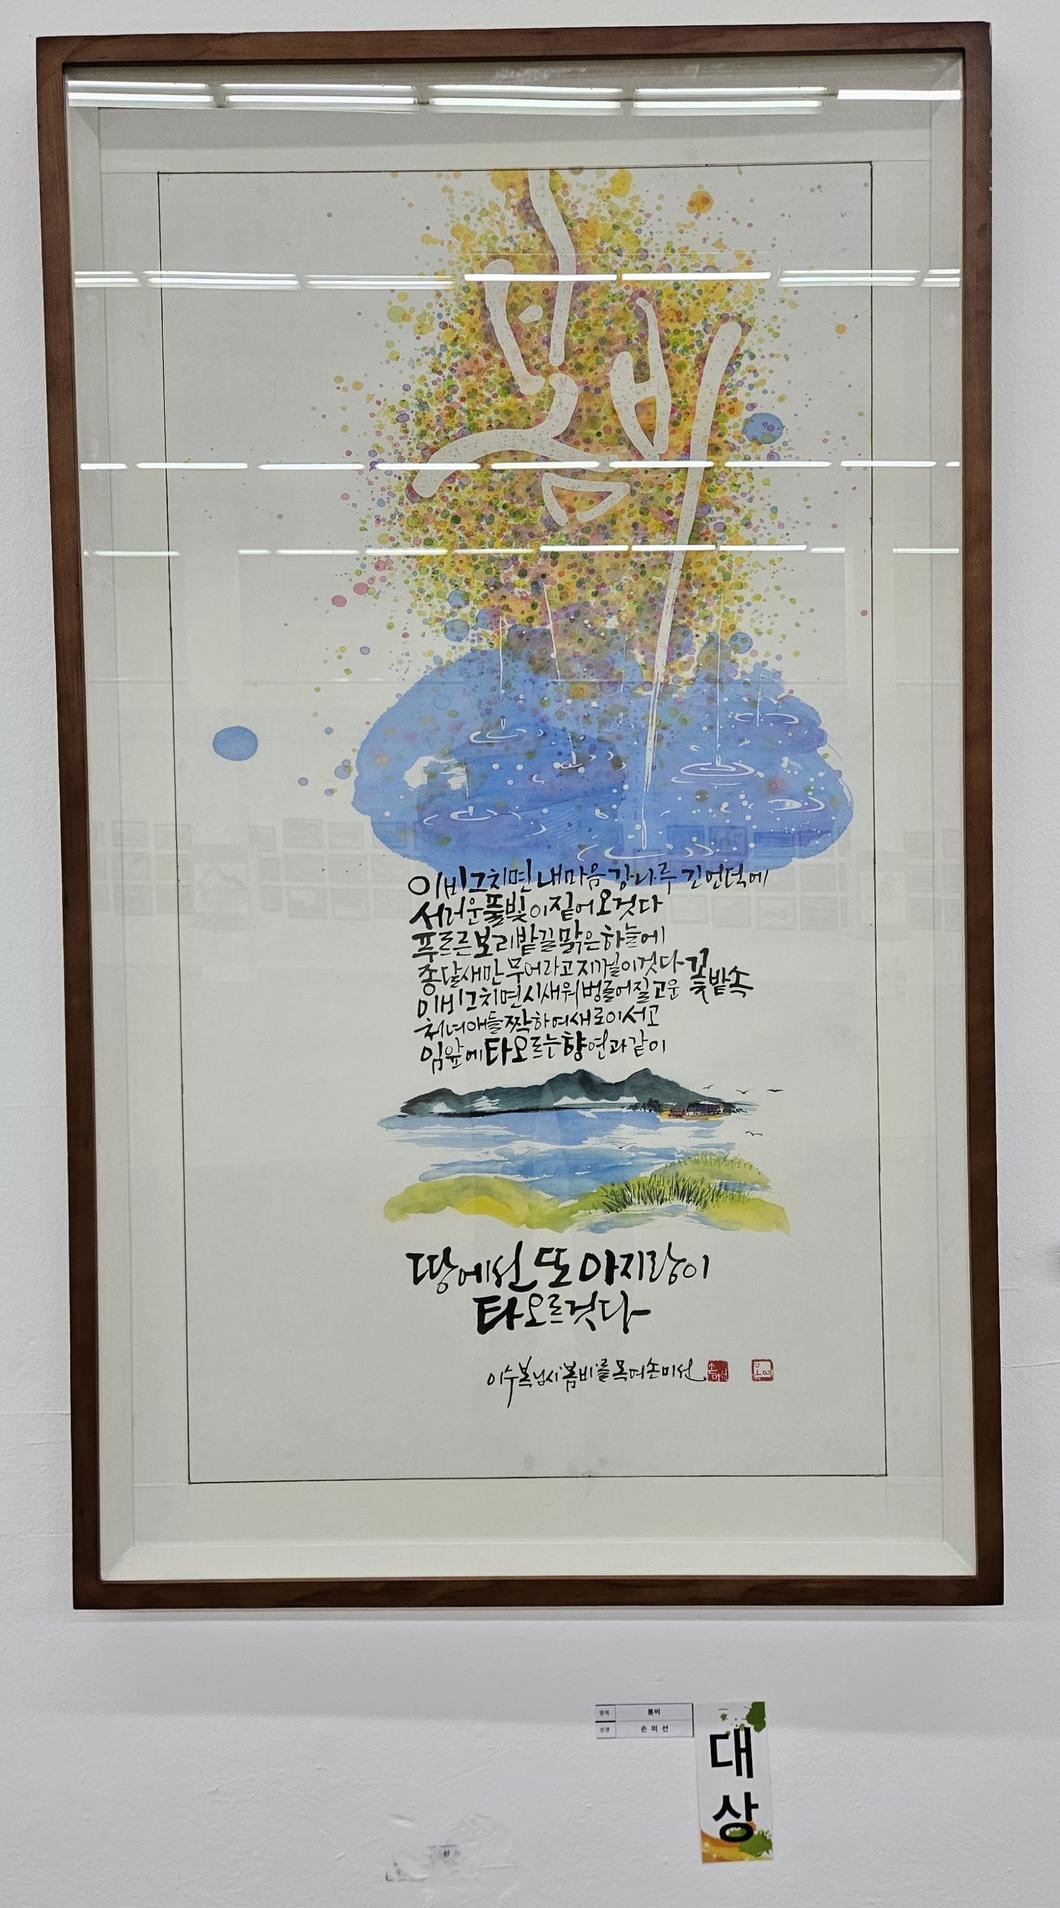 봄비
이 비 그치면 내 마음 강나루 긴 언덕에
서러운 풀빛이 짙어오것다
푸르른 보리밭길 맑은 하늘에
종달새만 무어라고 지껄이것다
이 비 그치면 시새워 벙글어질 고운 꽃밭 속
처녀애들 짝하여 새로이 서고
임 앞에 타오르는 향연과 같이
땅에선 또 아지랑이
타오르것다
이수복님 시 '봄비'를 목여 손미선
명제 봄비
성명 손미선
대
상